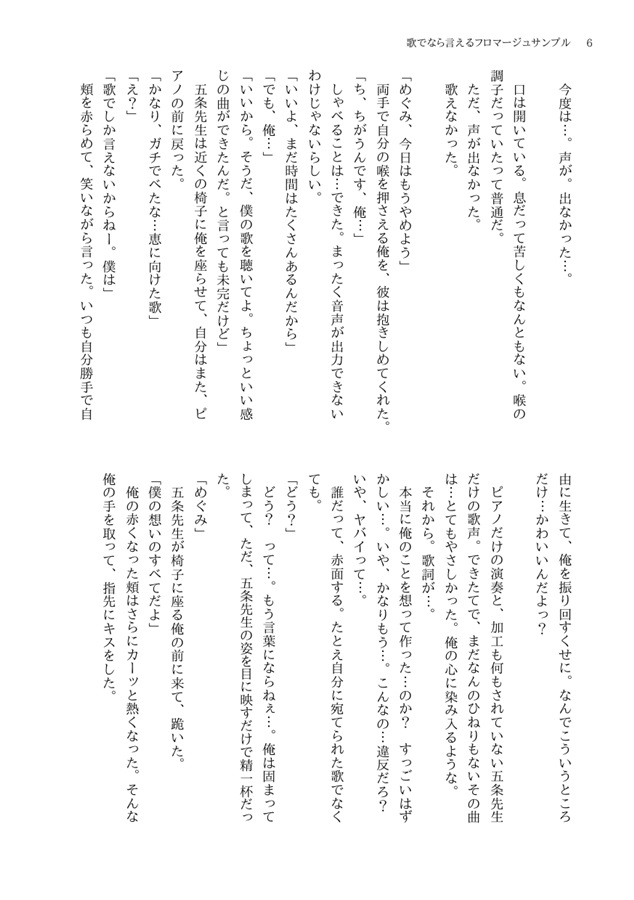 歌でなら言えるフロマージュサンプル 6
今度は…。声が。出なかった…。
口は開いている。息だって苦しくもなんともない。喉の
調子だっていたって普通だ。
ただ、声が出なかった。
歌えなかった。
「めぐみ、今日はもうやめよう」
両手で自分の喉を押さえる俺を、彼は抱きしめてくれた。
「ち、ちがうんです、俺…」
しゃべることは…できた。まったく音声が出力できない
わけじゃないらしい。
「いいよ、まだ時間はたくさんあるんだから」
「でも、俺…」
「いいから。そうだ、僕の歌を聴いてよ。ちょっといい感
じの曲ができたんだ。と言っても未完だけど」
五条先生は近くの椅子に俺を座らせて、自分はまた、ピ
アノの前に戻った。
「かなり、ガチでべたな…恵に向けた歌」
「え？」
「歌でしか言えないからねー。僕は」
頬を赤らめて、笑いながら言った。いつも自分勝手で自
由に生きて、俺を振り回すくせに。なんでこういうところ
だけ…かわいいんだよっ？
ピアノだけの演奏と、加工も何もされていない五条先生
だけの歌声。できたてで、まだなんのひねりもないその曲
は…とてもやさしかった。俺の心に染み入るような。
それから。歌詞が…。
本当に俺のことを想って作った…のか？　すっごいはず
かしい…。いや、かなりもう…。こんなの…違反だろ？
いや、ヤバイって…。
誰だって、赤面する。たとえ自分に宛てられた歌でなく
ても。
「どう？」
どう？　って…。もう言葉にならねぇ…。俺は固まって
しまって、ただ、五条先生の姿を目に映すだけで精一杯だっ
た。
「めぐみ」
五条先生が椅子に座る俺の前に来て、跪いた。
「僕の想いのすべてだよ」
俺の赤くなった頬はさらにカーッと熱くなった。そんな
俺の手を取って、指先にキスをした。